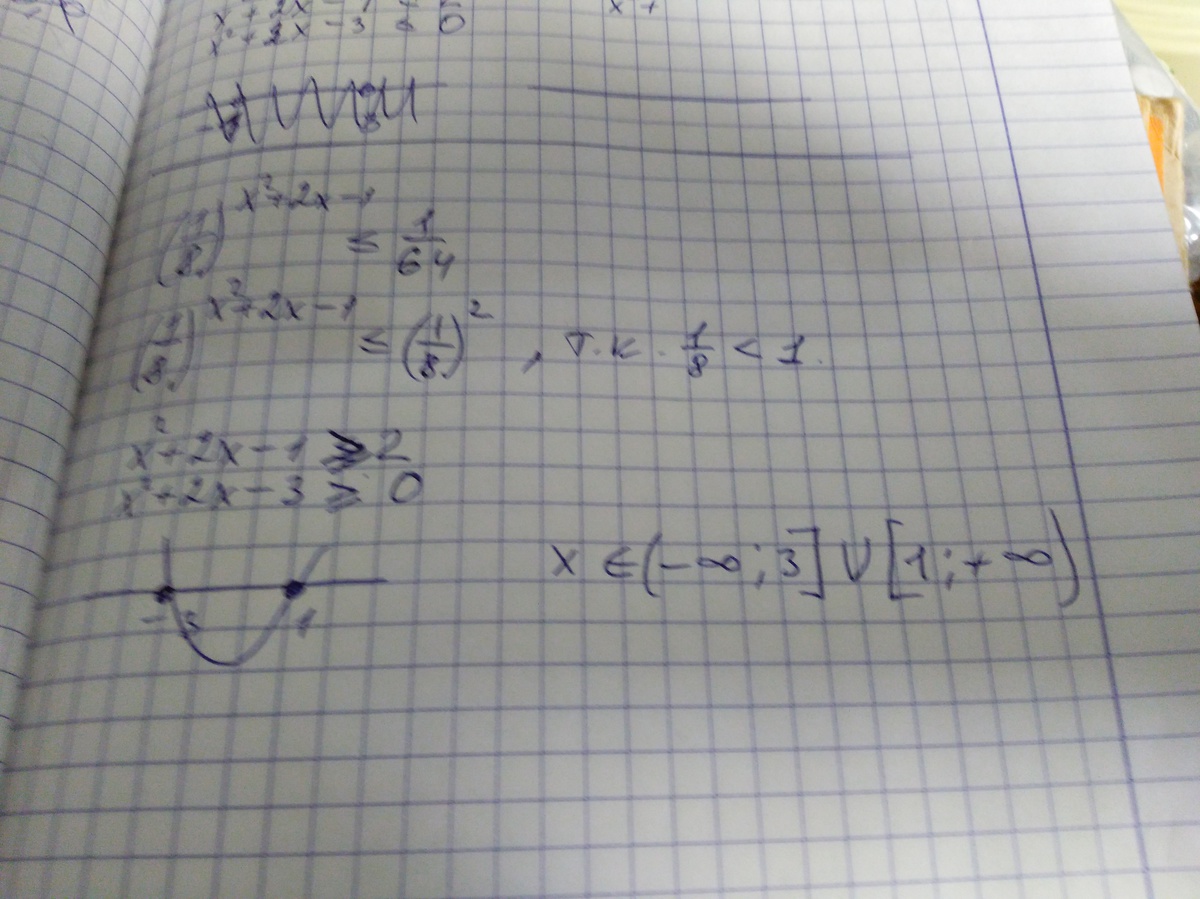 x²+2x-1 ≤
x²+2x-3 ≤ 0
x+
(1/8)^(x²+2x-1) ≤ 1/64
(1/8)^(x²+2x-1) ≤ (1/8)², т.к. 1/8 < 1.
x²+2x-1 ≥ 2
x²+2x-3 ≥ 0
x ∈ (-∞; 3] ∪ [1; +∞)
-3 1